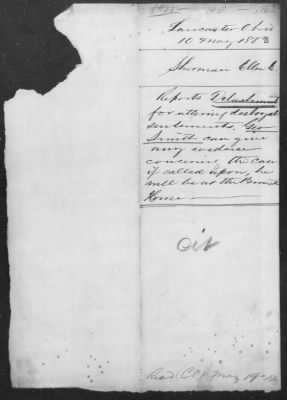 Lancaster Ohio
10 May 1863
Sherman Ellen E.
Reports
for uttering disloyal
sentiments. Geo
Smith can give
any evidence
concerning the case
if called upon, he
will be at the
House
Recd May 19"